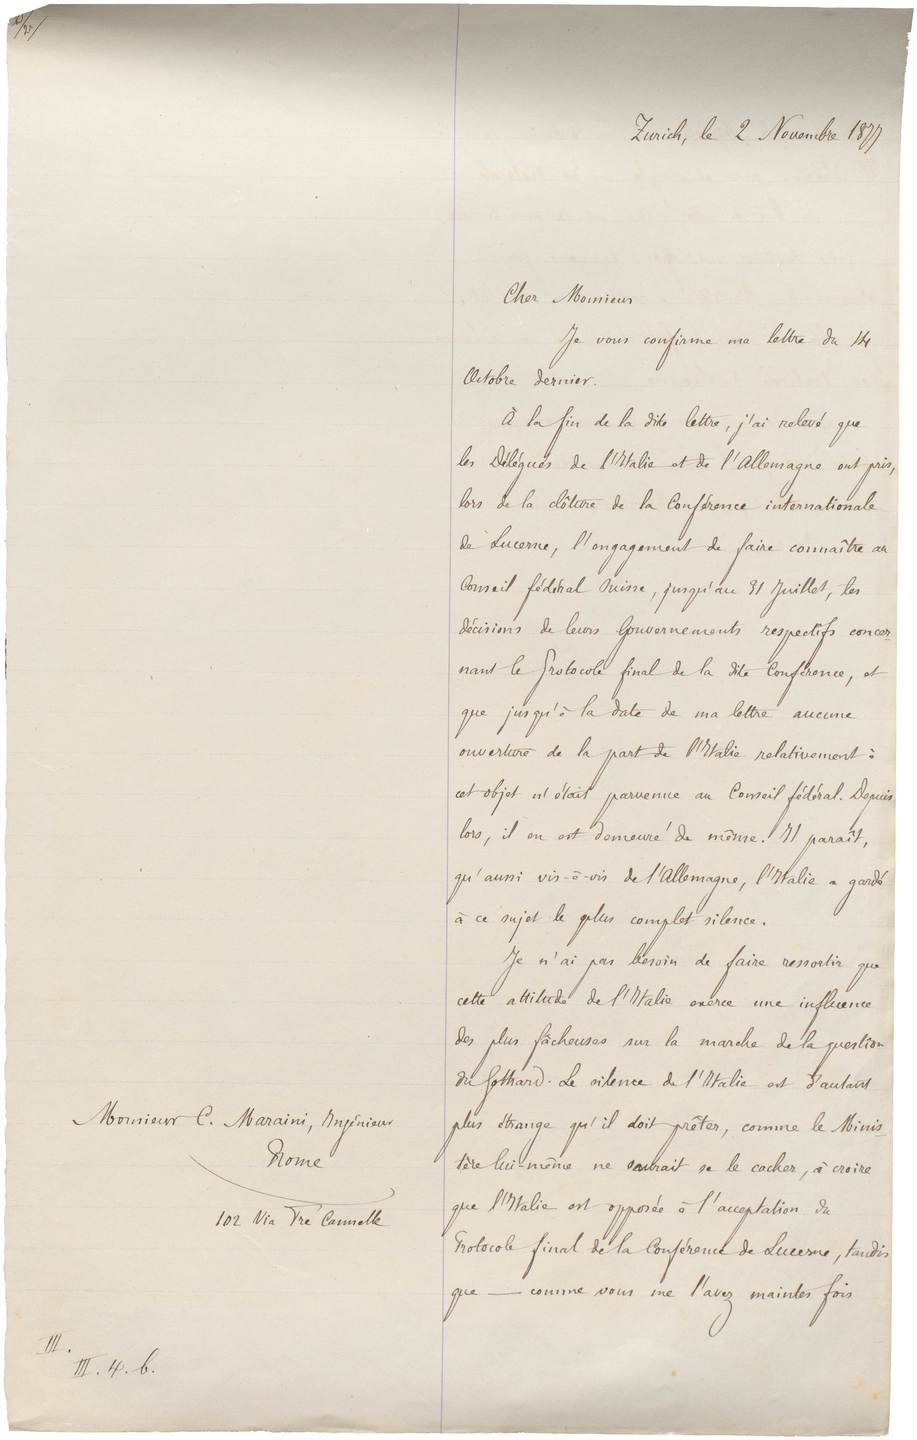 Zurich, le 2 Novembre 1877
Cher Monsieur
Je vous confirme ma lettre du 14
Octobre dernier.
À la fin de la dite lettre, j'ai relevé que
les Délégués de l'Italie et de l'Allemagne ont pris,
lors de la clôture de la Conférence internationale
de Lucerne, l'engagement de faire connaître au
Conseil fédéral Suisse, jusqu'au 31 Juillet, les
décisions de leurs Gouvernements respectifs concer-
nant le Protocole final de la dite Conférence, et
que jusqu'à la date de ma lettre aucune
ouverture de la part de l'Italie relativement à
cet objet n'était parvenue au Conseil fédéral. Depuis
lors, il en est demeuré de même. Il paraît,
qu'aussi vis-à-vis de l'Allemagne, l'Italie a gardé
à ce sujet le plus complet silence.
Je n'ai pas besoin de faire ressortir que
cette attitude de l'Italie exerce une influence
des plus fâcheuses sur la marche de la question
du Gothard. Le silence de l'Italie est d'autant
plus étrange qu'il doit prêter, comme le Minis-
tère lui-même ne saurait se le cacher, à croire
que l'Italie est opposée à l'acceptation du
Protocole final de la Conférence de Lucerne, tandis
que — comme vous me l'avez maintes fois
Monsieur C. Maraini, Ingénieur
Rome
102 Via Tre Cannelle
III.
III. 4. b.